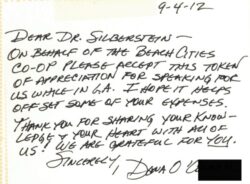 9-4-12
DEAR DR. SILBERSTEIN —
ON BEHALF OF THE BEACH CITIES
CO-OP PLEASE ACCEPT THIS TOKEN
OF APPRECIATION FOR SPEAKING FOR
US WHILE IN LA. I HOPE IT HELPS
OFFSET SOME OF YOUR EXPENSES.
THANK YOU FOR SHARING YOUR KNOW-
LEDGE & YOUR HEART WITH ALL OF
US! WE ARE GRATEFUL FOR YOU.
SINCERELY, DANA O'